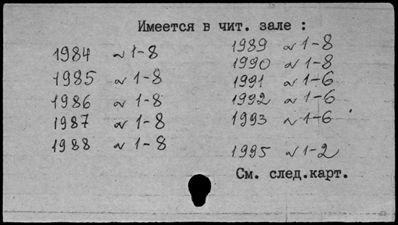 Имеется в чит. зале :
1984 N 1-8
1985 N 1-8
1986 N 1-8
1987 N 1-8
1988 N 1-8
1989 N 1-8
1990 N 1-8
1991 N 1-6
1992 N 1-6
1993 N 1-6
1995 N 1-2
См. след.карт.